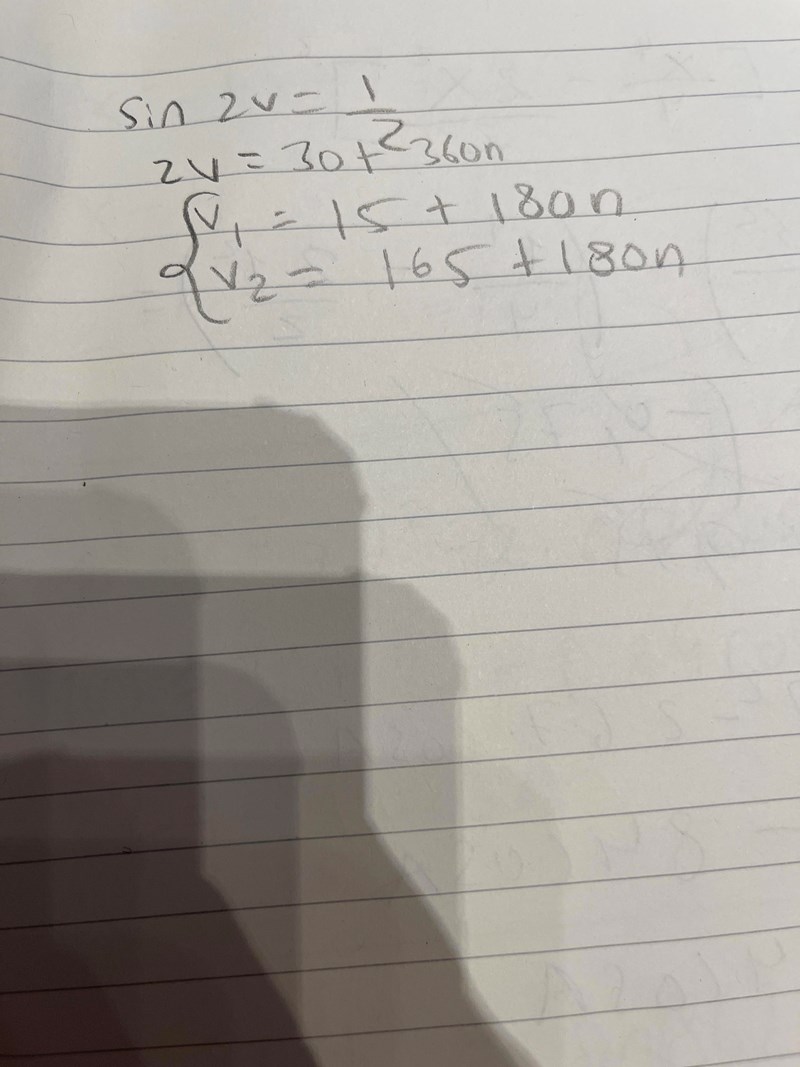 sin 2v = 1/2
2v = 30 + 360n
{ v₁ = 15 + 180n
v₂ = 165 + 180n